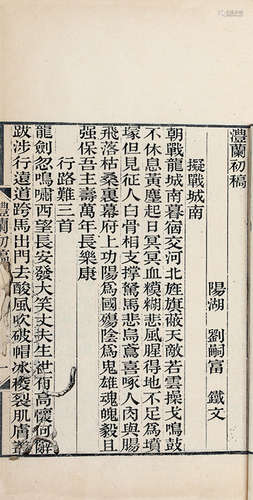 澧蘭初稿
陽湖 劉嗣富 鐵文
擬戰城南
朝戰龍城南暮宿交河北旌旗蔽天敵若雲操戈鳴鼓
不休息黃塵起日冥冥血糢糊悲風腥得地不足為墳
塚但見征人白骨相支撐駑馬悲鳥鳶喜啄人肉與腸
飛落枯桑裏幕府上功陽為國殤陰為鬼雄魂魄毅且
強保吾王壽萬年長樂康
行路難三首
龍劍忽鳴嘯西望長安發大笑丈夫生世有高懷何辭
跋涉行遠道跨馬出門去酸風吹破帽冰椶裂肌膚叢
澧蘭初稿
一